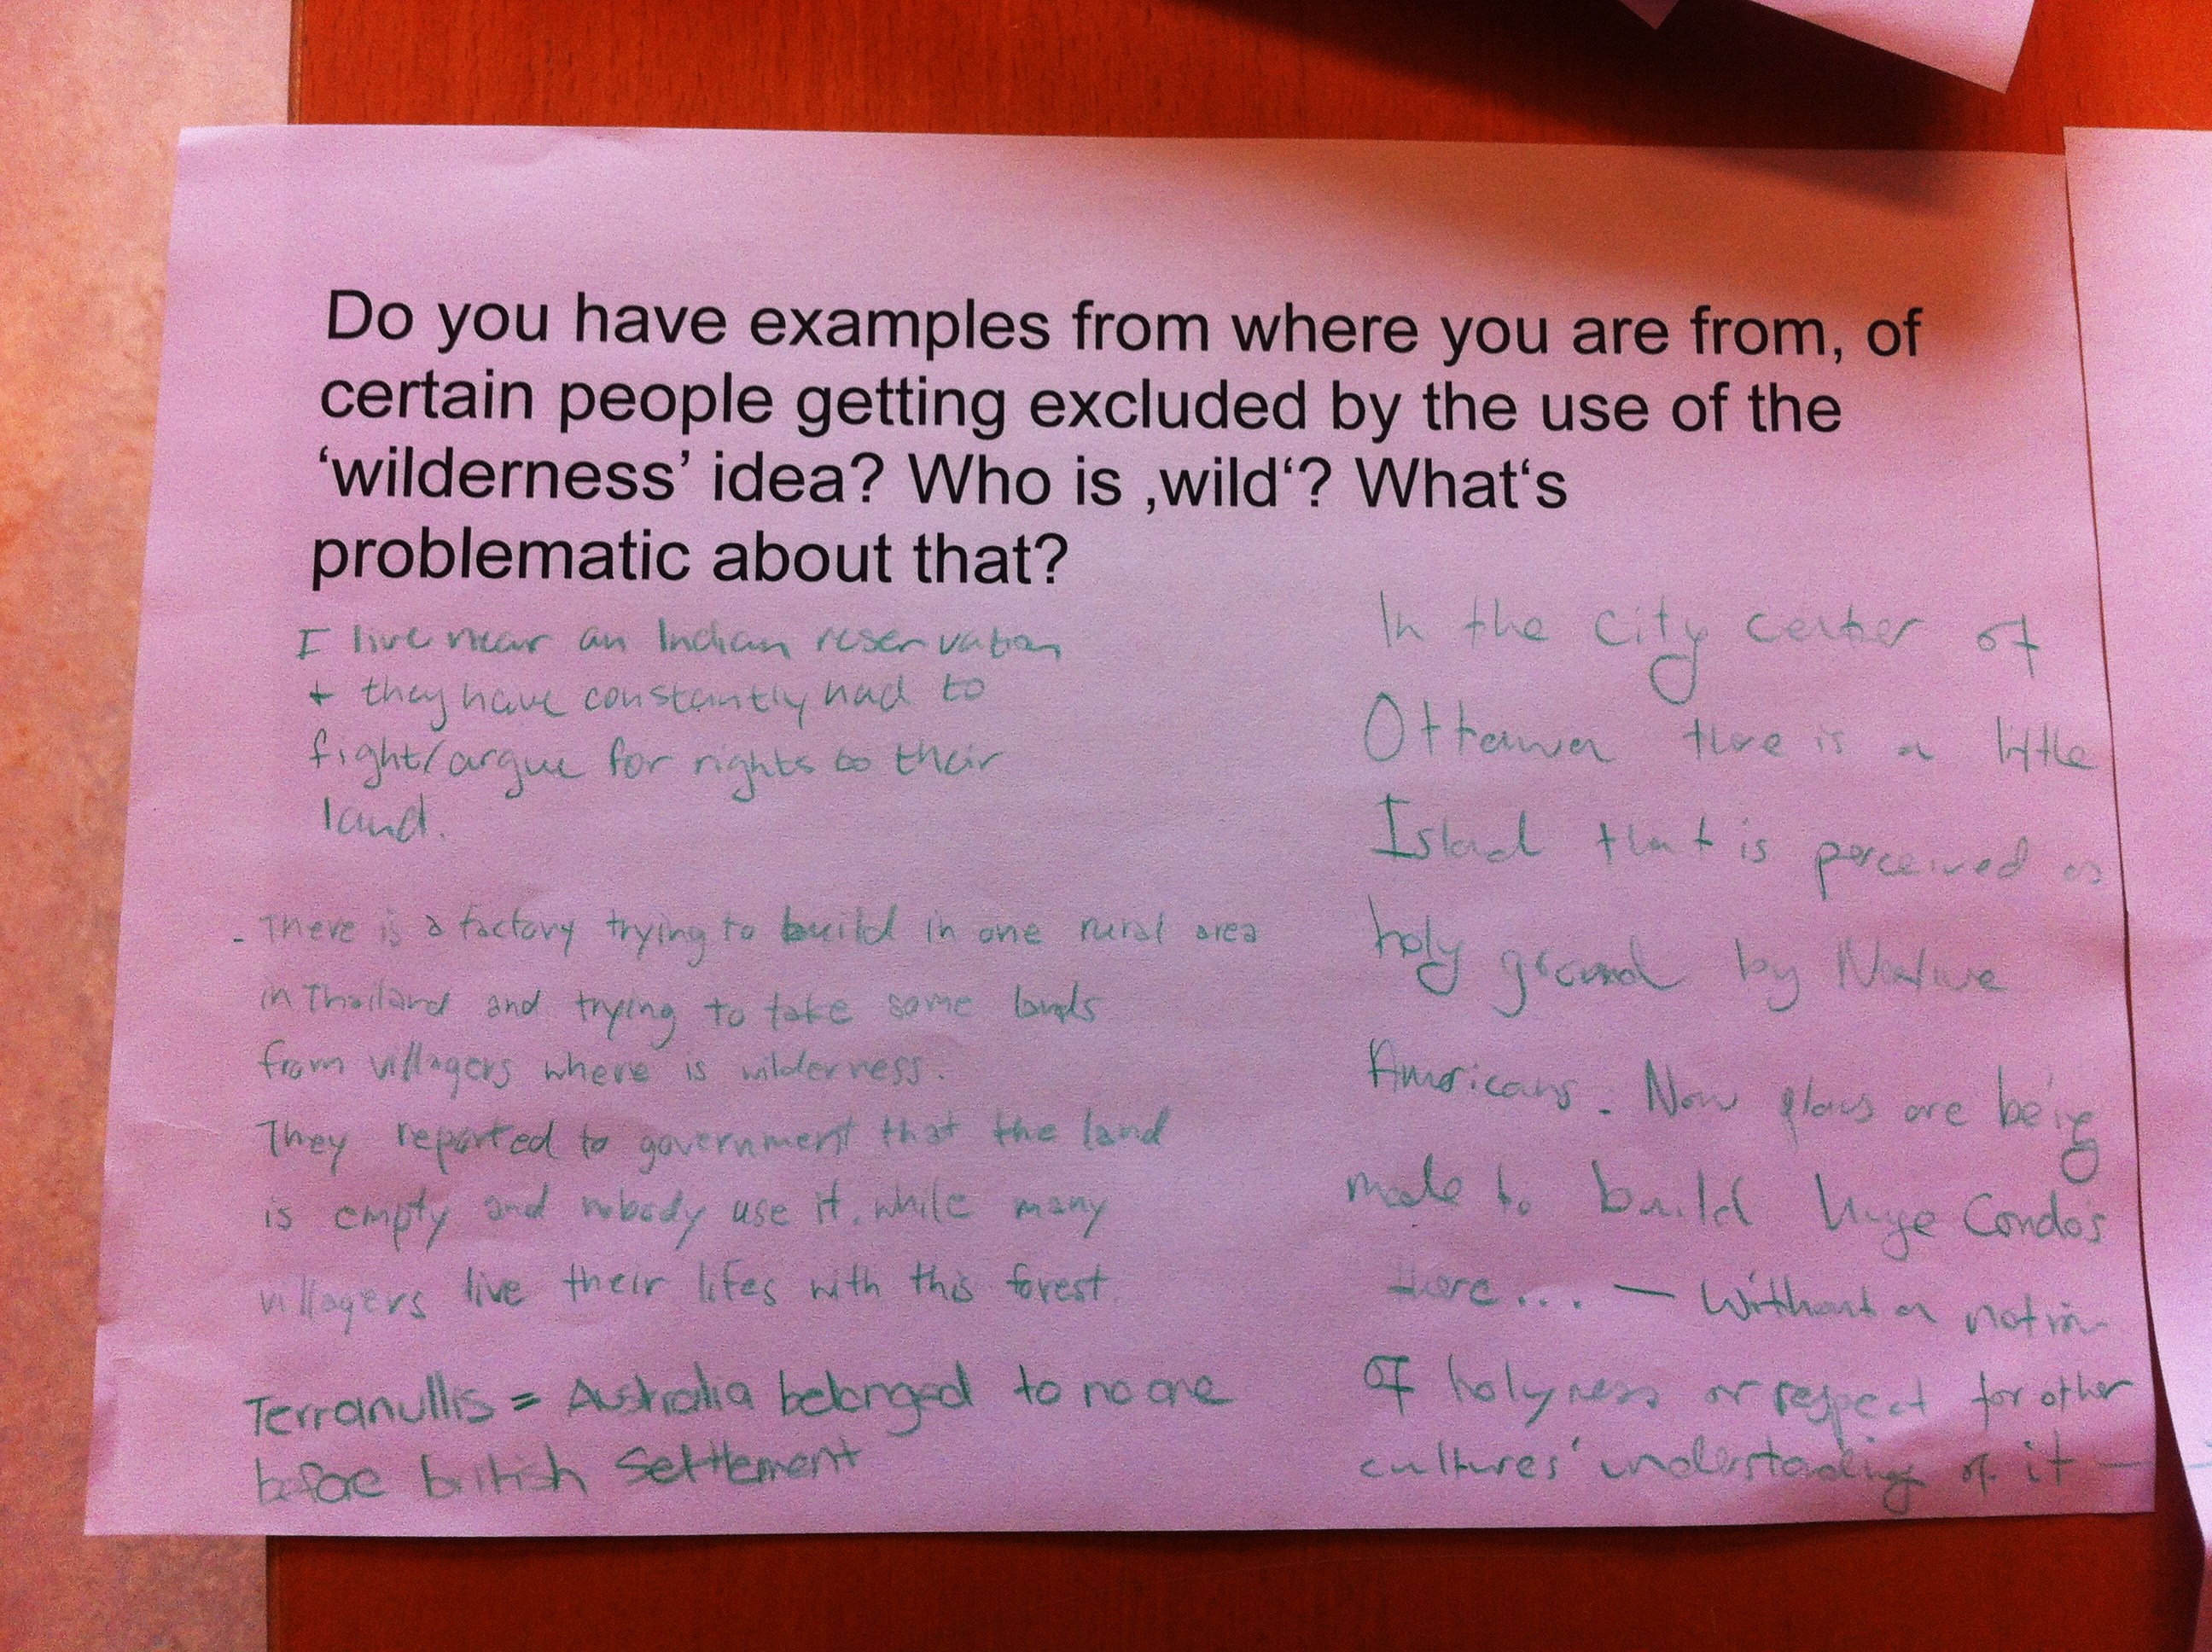 Do you have examples from where you are from, of
certain people getting excluded by the use of the
‘wilderness’ idea? Who is ‚wild‘? What‘s
problematic about that?
I live near an Indian reservation
+ they have constantly had to
fight/argue for rights to their
land.
- There is a factory trying to build in one rural area
in Thailand and trying to take some lands
from villagers where is wilderness.
They reported to government that the land
is empty and nobody use it, while many
villagers live their lifes with this forest.
Terranullis = Australia belonged to no one
before british settlement
In the city center of
Ottawa there is a little
Island that is perceived as
holy ground by Native
Americans. Now plans are being
made to build huge Condo's
there... — Without a notion
of holyness or respect for other
cultures' understanding of it —